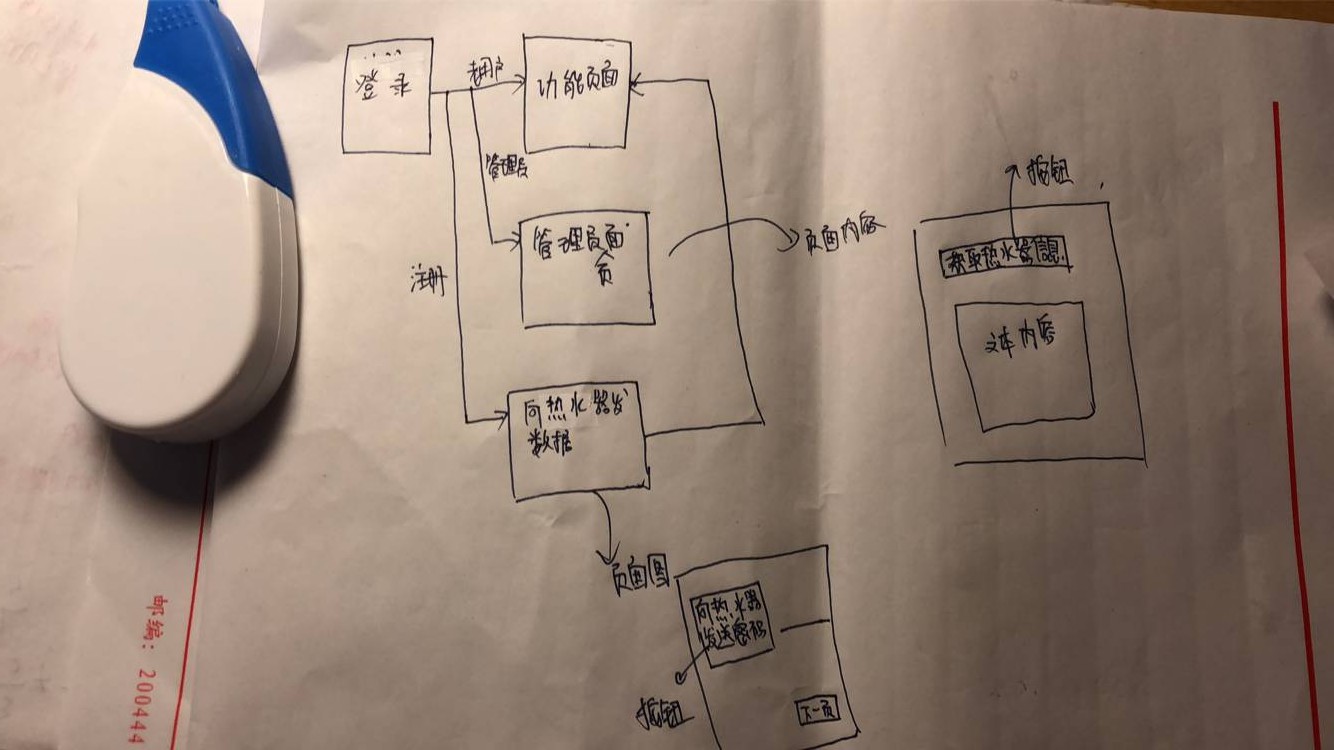 登录
老用户
功能页面
管理员
管理员面
页
注册
向热水器发
数据
页面内容
按钮
获取热水器信息
文本内容
页面图
向热水器
发送密码
按钮
下一页
邮编：200444